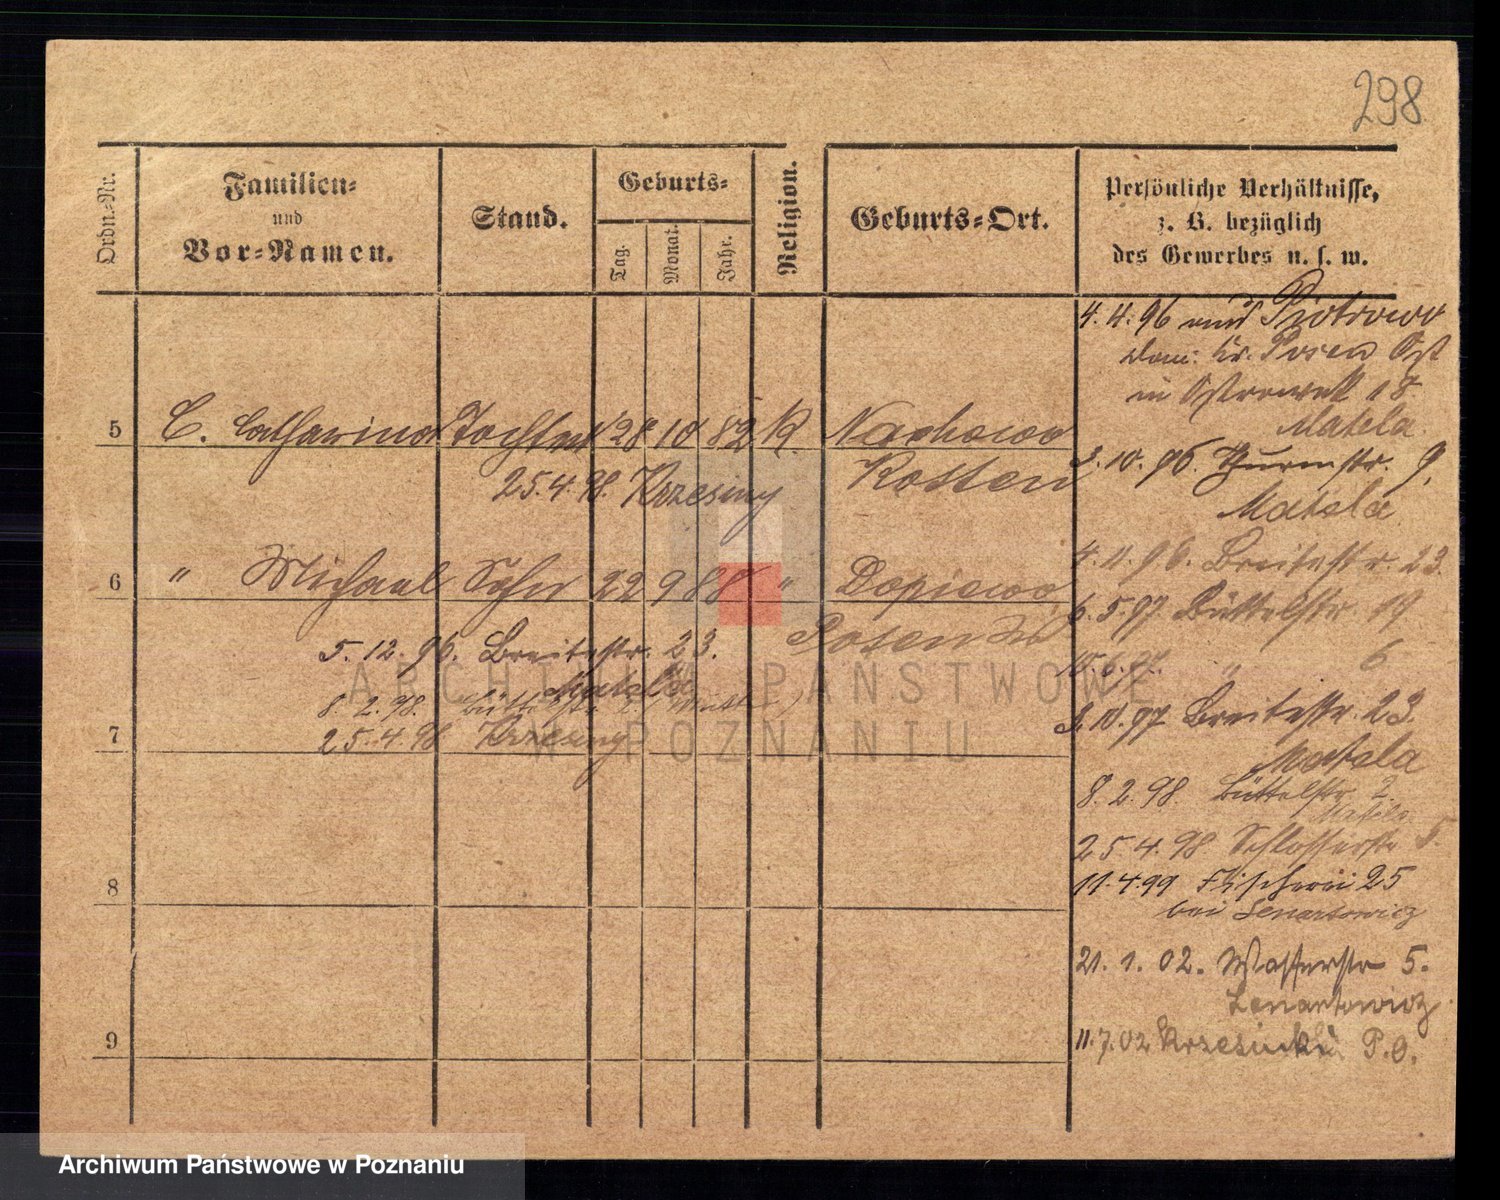 298
Ordn.-Nr.
Familien-
und
Vor-Namen.
Stand.
Geburts-
Tag.
Monat.
Jahr.
Religion.
Geburts-Ort.
Persönliche Verhältnisse,
z. B. bezüglich
des Gewerbes u. s. w.
5 C. Catharina Tochter 28 10 82 K. Nachowo
Kosten
25.4.98. Krzesiny
6 " Michael Sohn 22 9 88 " Dopiewo
Posen
5.12.96. Breitestr. 23.
Matela
8.2.98. Büttelstr. 2
25.4.98 Krzesiny
7
8
9
4.4.96 aus Piotrowo
Dom. Kr. Posen Ost
in Ostrowek 18
Matela.
3.10.96. Thurmstr. 9,
Matela
4.11.96. Breitestr. 23.
6.5.97 Büttelstr. 19
15.6.97. " 6
3.10.97 Breitestr. 23.
Matela
8.2.98. Büttelstr. 2
Matela
25.4.98 Schlosserstr 5.
11.4.99 Fischerei 25
bei Lenartowicz
21.1.02. Wasserstr 5.
Lenartowicz
11.7.02 Krzesinki P.O.
ARCHIWUM PAŃSTWOWE
W POZNANIU
Archiwum Państwowe w Poznaniu